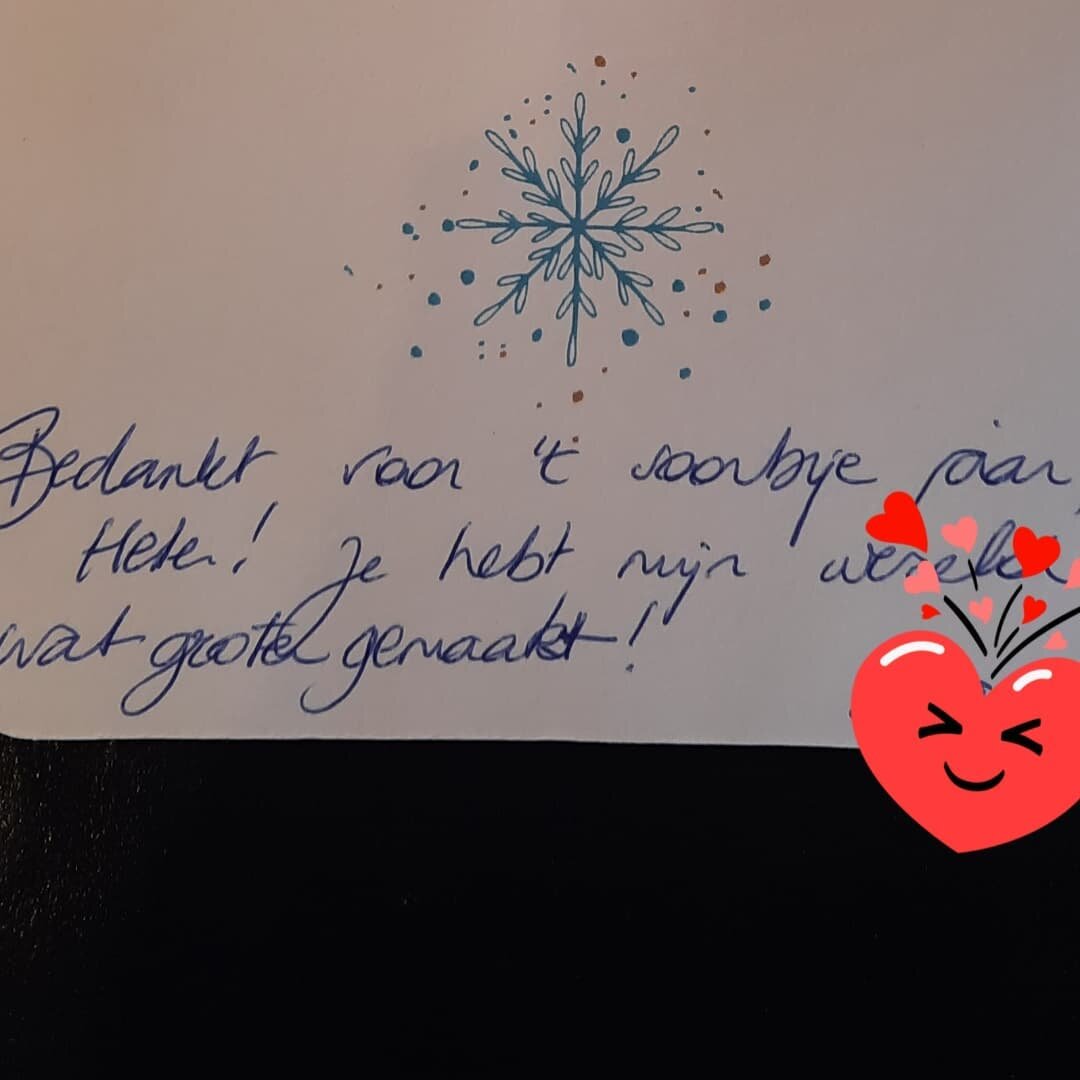 Bedankt voor 't voorbije jaar,
Helen! Je hebt mijn wereld
wat groter gemaakt!